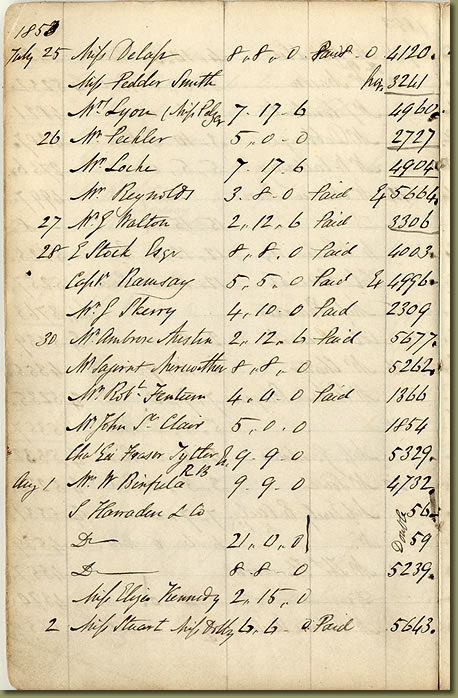 1853
July 25 Miss Delap 8,, 8,, 0 Paid - 0 4120.
Miss Pedder Smith 3241
Mrs Lyon (Miss 7 - 17 - 6 4960
26 Mr 5 - 0 - 0 2727
Mr Locke 7 - 17 - 6 4904
Mr Reynolds 3 - 8 - 0 Paid 5664
27 Mr J Walton 2,, 12,, 6 Paid 3306
28 E Stock Esqr 8,, 8,, 0 Paid 4003.
Captn Ramsay 5,, 5,, 0 Paid 4996.
Mr J Skerry 4,, 10 - 0 Paid 2309
30 Mr Ambrose Austin 2,, 12,, 6 Paid 5677.
Mr 8,, 8,, 0 5262.
Mr Robt. 4,, 0 - 0 Paid 1366
Mr John St Clair 5,, 0,, 0 1854
Chas Ed Fraser Tytler 9 - 9 - 0 5329.
Aug 1 Mr W Binfield R B 9 - 9 - 0 4732.
S Harraden & Co 56
Do 21,, 0,, 0 59
Do 8 - 8 - 0 5239.
Miss Eliza Kennedy 2,, 15,, 0
2 Miss Stuart Miss 6,, 6 - 0 Paid 5643.